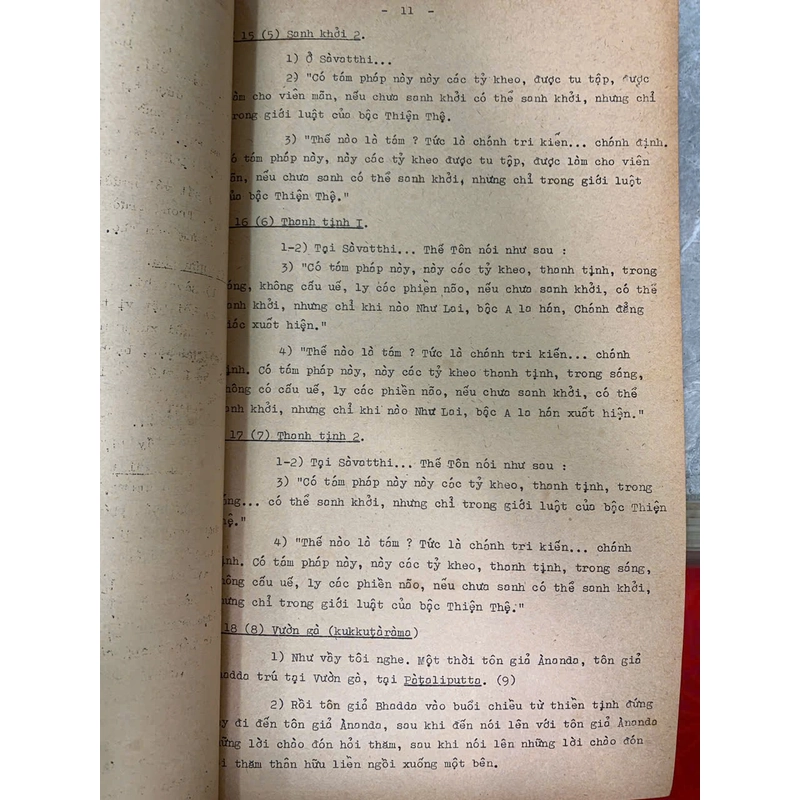 - 11 -
15 (5) Sanh khởi 2.
1) Ở Sàvatthi...
2) "Có tám pháp này này các tỷ kheo, được tu tập, được
cho viên mãn, nếu chưa sanh khởi có thể sanh khởi, nhưng chỉ
trong giới luật của bậc Thiện Thệ.
3) "Thế nào là tám ? Tức là chánh tri kiến... chánh định.
tám pháp này, này các tỷ kheo được tu tập, được làm cho viên
nếu chưa sanh có thể sanh khởi, nhưng chỉ trong giới luật
bậc Thiện Thệ."
16 (6) Thanh tịnh I.
1-2) Tại Sàvatthi... Thế Tôn nói như sau :
3) "Có tám pháp này, này các tỷ kheo, thanh tịnh, trong
không cấu uế, ly các phiền não, nếu chưa sanh khởi, có thể
khởi, nhưng chỉ khi nào Như Lai, bậc A la hán, Chánh đẳng
xuất hiện."
4) "Thế nào là tám ? Tức là chánh tri kiến... chánh
Có tám pháp này, này các tỷ kheo thanh tịnh, trong sáng,
có cấu uế, ly các phiền não, nếu chưa sanh khởi, có thể
khởi, nhưng chỉ khi nào Như Lai, bậc A la hán xuất hiện."
17 (7) Thanh tịnh 2.
1-2) Tại Sàvatthi... Thế Tôn nói như sau :
3) "Có tám pháp này này các tỷ kheo, thanh tịnh, trong
có thể sanh khởi, nhưng chỉ trong giới luật của bậc Thiện
4) "Thế nào là tám ? Tức là chánh tri kiến... chánh
Có tám pháp này, này các tỷ kheo, thanh tịnh, trong sáng,
cấu uế, ly các phiền não, nếu chưa sanh có thể sanh khởi,
chỉ trong giới luật của bậc Thiện Thệ."
18 (8) Vườn gà (kukkutàràma)
1) Như vầy tôi nghe. Một thời tôn giả Ànanda, tôn giả
trú tại Vườn gà, tại Pàtaliputta. (9)
2) Rồi tôn giả Bhadda vào buổi chiều từ thiền tịnh đứng
đi đến tôn giả Ànanda, sau khi đến nói lên với tôn giả Ànanda
lời chào đón hỏi thăm, sau khi nói lên những lời chào đón
thăm thân hữu liền ngồi xuống một bên.